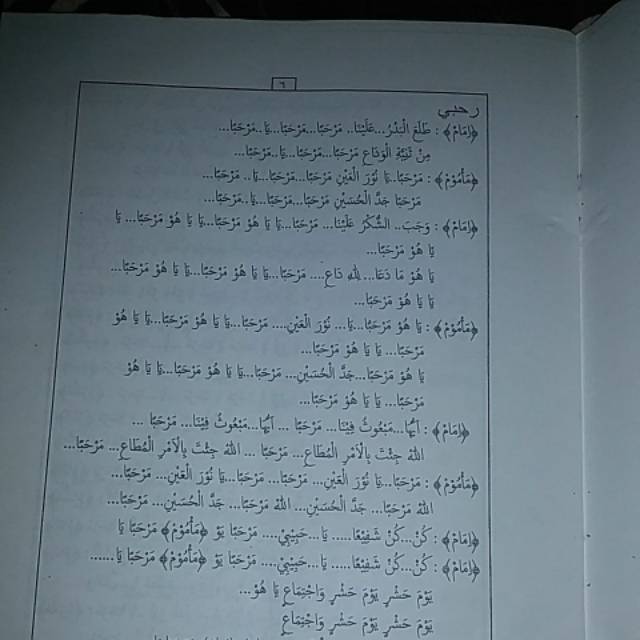 ٦
رحبي
﴿اِمَامْ﴾ : طَلَعَ الْبَدْرُ...عَلَيْنَا.. مَرْحَبًا...مَرْحَبًا...يَا..مَرْحَبًا...
مِنْ ثَنِيَّةِ الْوَدَاعِ مَرْحَبًا...مَرْحَبًا...يَا..مَرْحَبًا...
﴿مَأْمُوْمْ﴾ : مَرْحَبًا..يَا نُوْرَ الْعَيْنِ مَرْحَبًا...مَرْحَبًا...يَا.. مَرْحَبًا...
مَرْحَبًا جَدَّ الْحُسَيْنِ مَرْحَبًا...مَرْحَبًا...يَا..مَرْحَبًا...
﴿اِمَامْ﴾ : وَجَبَ.. الشُّكْرُ عَلَيْنَا... مَرْحَبًا...يَا يَا هُوْ مَرْحَبًا...يَا يَا هُوْ مَرْحَبًا... يَا
يَا هُوْ مَرْحَبًا...
يَا هُوْ مَا دَعَا...لِلّٰهِ دَاعٍ.... مَرْحَبًا...يَا يَا هُوْ مَرْحَبًا...يَا يَا هُوْ مَرْحَبًا...
يَا يَا هُوْ مَرْحَبًا...
﴿مَأْمُوْمْ﴾ : يَا هُوْ مَرْحَبًا...يَا... نُوْرَ الْعَيْنِ.... مَرْحَبًا...يَا يَا هُوْ مَرْحَبًا...يَا يَا هُوْ
مَرْحَبًا... يَا يَا هُوْ مَرْحَبًا...
يَا هُوْ مَرْحَبًا...جَدَّ الْحُسَيْنِ... مَرْحَبًا...يَا يَا هُوْ مَرْحَبًا...يَا يَا هُوْ
مَرْحَبًا... يَا يَا هُوْ مَرْحَبًا...
﴿اِمَامْ﴾ : اَيُّهَا...مَبْعُوثُ فِيْنَا... مَرْحَبًا ... اَيُّهَا...مَبْعُوثُ فِيْنَا... مَرْحَبًا ...
اللهُ جِئْتَ بِالْاَمْرِ الْمُطَاعِ... مَرْحَبًا ... اللهُ جِئْتَ بِالْاَمْرِ الْمُطَاعِ... مَرْحَبًا...
﴿مَأْمُوْمْ﴾ : مَرْحَبًا...يَا نُوْرَ الْعَيْنِ... مَرْحَبًا... مَرْحَبًا...يَا نُوْرَ الْعَيْنِ... مَرْحَبًا...
اللهُ مَرْحَبًا... جَدَّ الْحُسَيْنِ... اللهُ مَرْحَبًا... جَدَّ الْحُسَيْنِ... مَرْحَبًا...
﴿اِمَامْ﴾ : كُنْ...كُنْ شَفِيْعًا..... يَا...حَبِيْبِيْ.... مَرْحَبًا يَوْ ﴿مَأْمُوْمْ﴾ مَرْحَبًا يَا
﴿اِمَامْ﴾ : كُنْ...كُنْ شَفِيْعًا..... يَا...حَبِيْبِيْ.... مَرْحَبًا يَوْ ﴿مَأْمُوْمْ﴾ مَرْحَبًا يَا......
يَوْمَ حَشْرٍ يَوْمَ حَشْرٍ وَاجْتِمَاعِ يَا هُوْ...
يَوْمَ حَشْرٍ يَوْمَ حَشْرٍ وَاجْتِمَاعِ